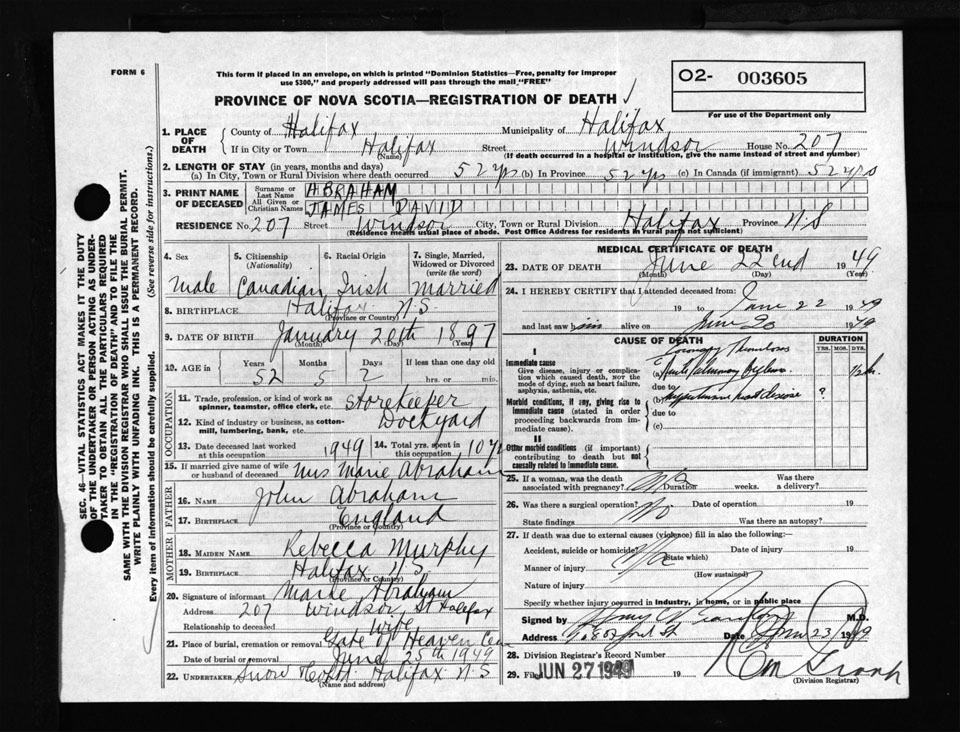 FORM 6
This form if placed in an envelope, on which is printed "Dominion Statistics—Free, penalty for improper
use $300," and properly addressed will pass through the mail "FREE"
O2- 003605
For use of the Department only
PROVINCE OF NOVA SCOTIA—REGISTRATION OF DEATH
1. PLACE OF DEATH County of Halifax Municipality of Halifax
If in City or Town Halifax (Name) Street Windsor House No. 207
(If death occurred in a hospital or institution, give the name instead of street and number)
2. LENGTH OF STAY (in years, months and days)
(a) In City, Town or Rural Division where death occurred 52 yrs (b) In Province 52 yrs (c) In Canada (if immigrant) 52 yrs
3. PRINT NAME OF DECEASED Surname or Last Name ABRAHAM
All Given or Christian Names JAMES DAVID
RESIDENCE No. 207 Street Windsor City, Town or Rural Division Halifax Province N.S
(Residence means usual place of abode. Post Office Address for residents in rural parts not sufficient)
4. Sex 5. Citizenship (Nationality) 6. Racial Origin 7. Single, Married, Widowed or Divorced (write the word)
male Canadian Irish married
8. BIRTHPLACE Halifax N.S.
(Province or Country)
9. DATE OF BIRTH January 20th 1897
(Month) (Day) (Year)
10. AGE in Years Months Days If less than one day old
52 5 2 hrs. or min.
OCCUPATION
11. Trade, profession, or kind of work as spinner, teamster, office clerk, etc. Storekeeper
12. Kind of industry or business, as cotton-mill, lumbering, bank, etc. Dockyard
13. Date deceased last worked at this occupation 1949 14. Total yrs. spent in this occupation 10
15. If married give name of wife or husband of deceased Mrs Marie Abraham
FATHER
16. NAME John Abraham
17. BIRTHPLACE England
(Province or Country)
MOTHER
18. MAIDEN NAME Rebecca Murphy
19. BIRTHPLACE Halifax N.S.
(Province or Country)
20. Signature of informant Marie Abraham
Address 207 Windsor St Halifax
Relationship to deceased Wife
21. Place of burial, cremation or removal Gate of Heaven Cem
Date of burial or removal June 25th 1949
22. UNDERTAKER Snow Halifax N.S
(Name and address)
MEDICAL CERTIFICATE OF DEATH
23. DATE OF DEATH June 22nd 1949
(Month) (Day) (Year)
24. I HEREBY CERTIFY that I attended deceased from:
19 to June 22 1949
and last saw him alive on June 20 1949
CAUSE OF DEATH DURATION
YRS. MOS. DYS.
I
Immediate cause
Give disease, injury or complication which caused death, not the mode of dying, such as heart failure, asphyxia, asthenia, etc.
Coronary Thrombosis
(a) Acute Pulmonary
due to
Morbid conditions, if any, giving rise to immediate cause (stated in order proceeding backwards from immediate cause).
(b) heart disease ?
due to
(c)
II
Other morbid conditions (if important) contributing to death but not causally related to immediate cause.
25. If a woman, was the death associated with pregnancy? Duration weeks. Was there a delivery?
26. Was there a surgical operation? No Date of operation 19
State findings Was there an autopsy?
27. If death was due to external causes (violence) fill in also the following:
Accident, suicide or homicide? (State which) Date of injury 19
Manner of injury
(How sustained)
Nature of injury
Specify whether injury occurred in industry, in home, or in public place
Signed by M.D.
Address Date June 23 1949
28. Division Registrar's Record Number
29. Filed JUN 27 1949 19
(Division Registrar)
SEC. 46—VITAL STATISTICS ACT MAKES IT THE DUTY
OF THE UNDERTAKER OR PERSON ACTING AS UNDER-
TAKER TO OBTAIN ALL THE PARTICULARS REQUIRED
IN THE "REGISTRATION OF DEATH" AND TO FILE THE
SAME WITH THE DIVISION REGISTRAR WHO SHALL ISSUE THE BURIAL PERMIT.
WRITE PLAINLY WITH UNFADING INK. THIS IS A PERMANENT RECORD.
Every item of information should be carefully supplied. (See reverse side for instructions.)